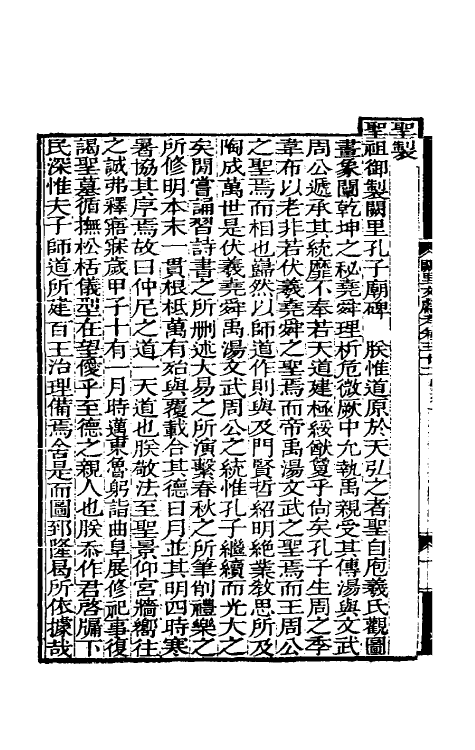 聖製
聖祖御製闕里孔子廟碑　朕惟道原於天弘之者聖自庖羲氏觀圖
畫象闡乾坤之秘堯舜理析危微厥中允執禹親受其傳湯與文武
周公遞承其統靡不奉若天道建極綏猷敻乎尚矣孔子生周之季
韋布以老非若伏羲堯舜之聖焉而帝禹湯文武之聖焉而王周公
之聖焉而相也巋然以師道作則與及門賢哲紹明絶業教思所及
陶成萬世是伏羲堯舜禹湯文武周公之統惟孔子繼續而光大之
矣閒嘗誦習詩書之所删述大易之所演繫春秋之所筆削禮樂之
所修明本末一貫根柢萬有殆與覆載合其德日月並其明四時寒
暑協其序焉故曰仲尼之道一天道也朕敬法至聖景仰宮牆嚮往
之誠弗釋寤寐歲甲子十有一月時邁東魯躬詣曲阜展修祀事復
謁聖墓循撫松栝儀型在望僾乎至德之親人也朕忝作君啓牖下
民深惟夫子師道所建百王治理備焉舍是而圖郅隆曷所依據哉